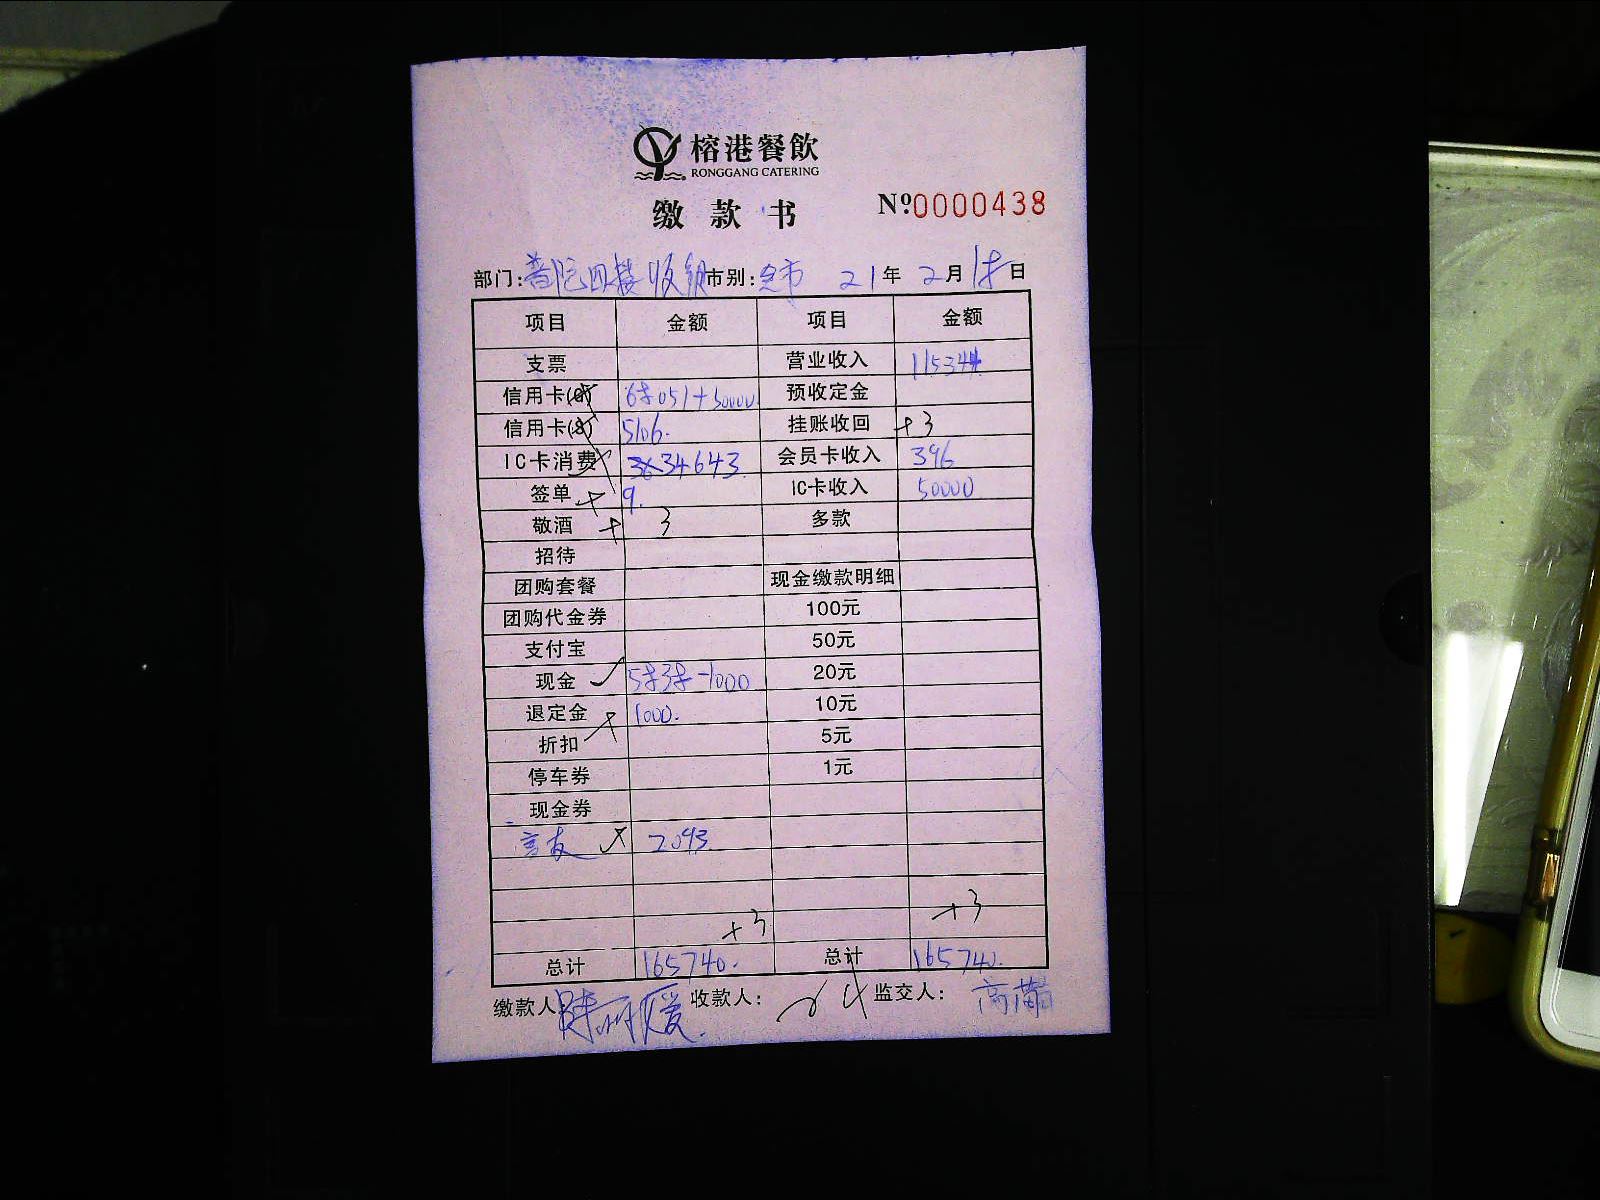 榕港餐飲
RONGGANG CATERING
缴款书 №0000438
部门:普陀四楼收银 市别:全市 21年2月18日
项目 金额 项目 金额
支票 营业收入 115344
信用卡 68051+50000 预收定金
信用卡 5106. 挂账收回 +3
IC卡消费 34643. 会员卡收入 396
签单 9. IC卡收入 50000
敬酒 + 3 多款
招待
团购套餐 现金缴款明细
团购代金券 100元
支付宝 50元
现金 5838-1000 20元
退定金 1000. 10元
折扣 5元
停车券 1元
现金券
2093
+3 +3
总计 165740. 总计 165740.
缴款人: 收款人: 监交人: